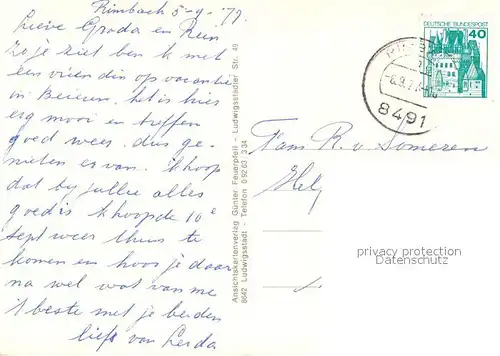 Rimbach 5-9-'79.
Lieve Greda en Rein
Zo je ziet ben ik met
een vriendin op vacantie
in Beieren. het is hier
erg mooi en treffen
goed weer. dus ge-
nieten er van. ik hoop
dat bij jullie alles
goed is ik hoop de 10e
sept weer thuis te
komen en hoor je daar
na wel wat van me
't beste met je beiden
liefs van Gerda
Ansichtskartenverlag Günter Feuerpfeil - Ludwigsstädter Str. 49
8642 Ludwigsstadt - Telefon 0 92 63 3 34
DEUTSCHE BUNDESPOST
40
8491
Fam R. v. Someren
privacy protection
Datenschutz